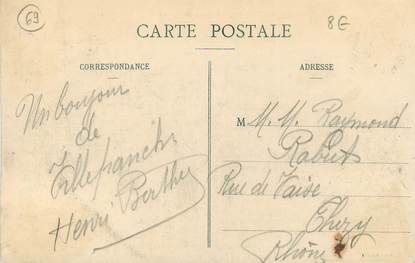 69
8€
CARTE POSTALE
CORRESPONDANCE
ADRESSE
Un bonjour
de
Villefranche
Henri Berthe
M M. M. Raymond
Rabut
Rue de Vaise
Thizy
Rhône